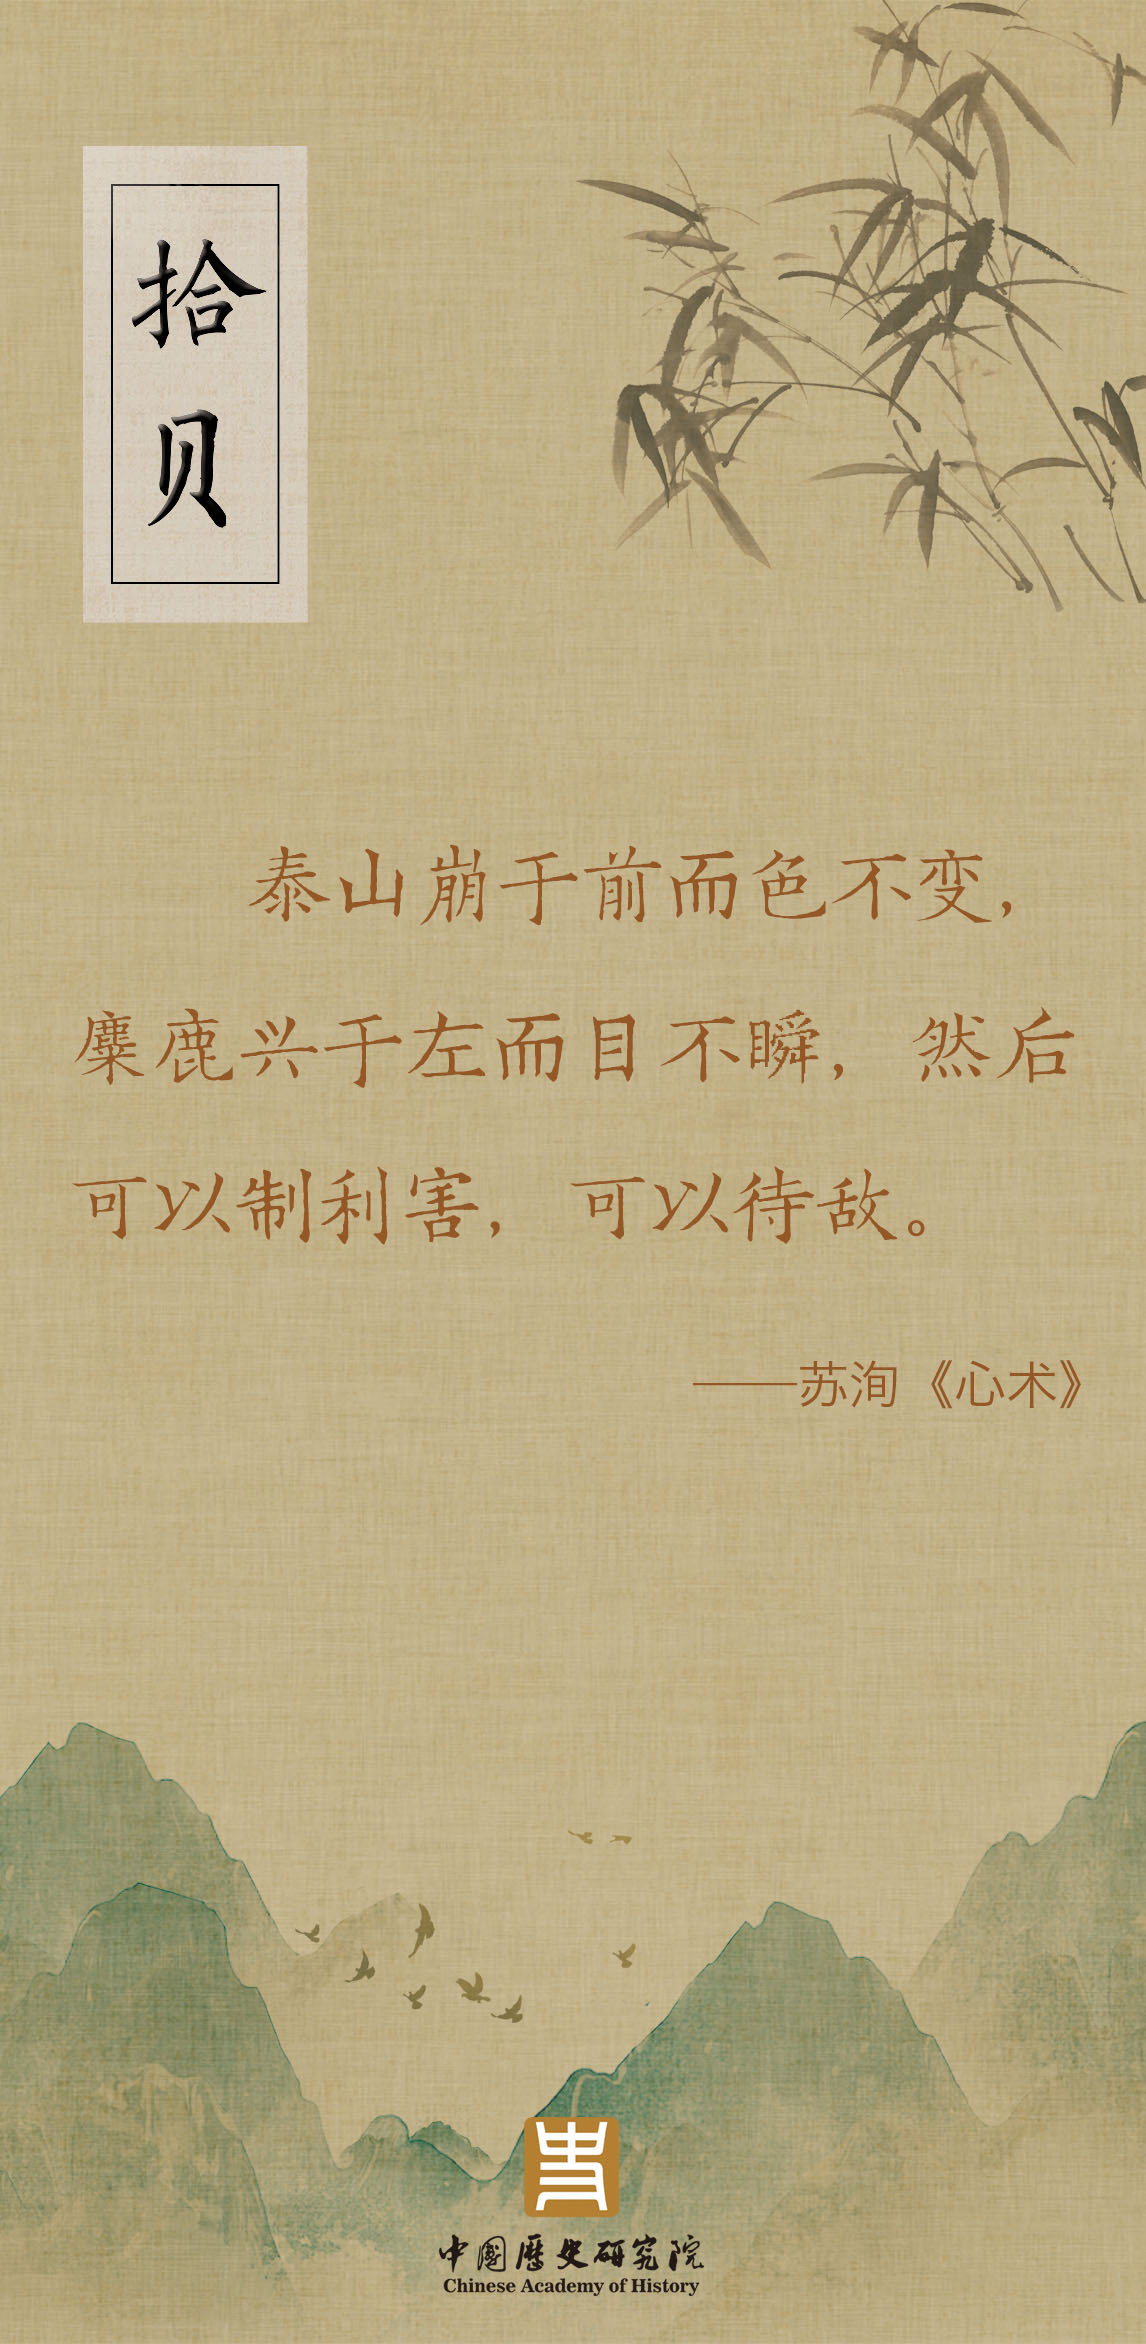 拾贝
泰山崩于前而色不变，
麋鹿兴于左而目不瞬，然后
可以制利害，可以待敌。
——苏洵《心术》
中国歷史研究院
Chinese Academy of History